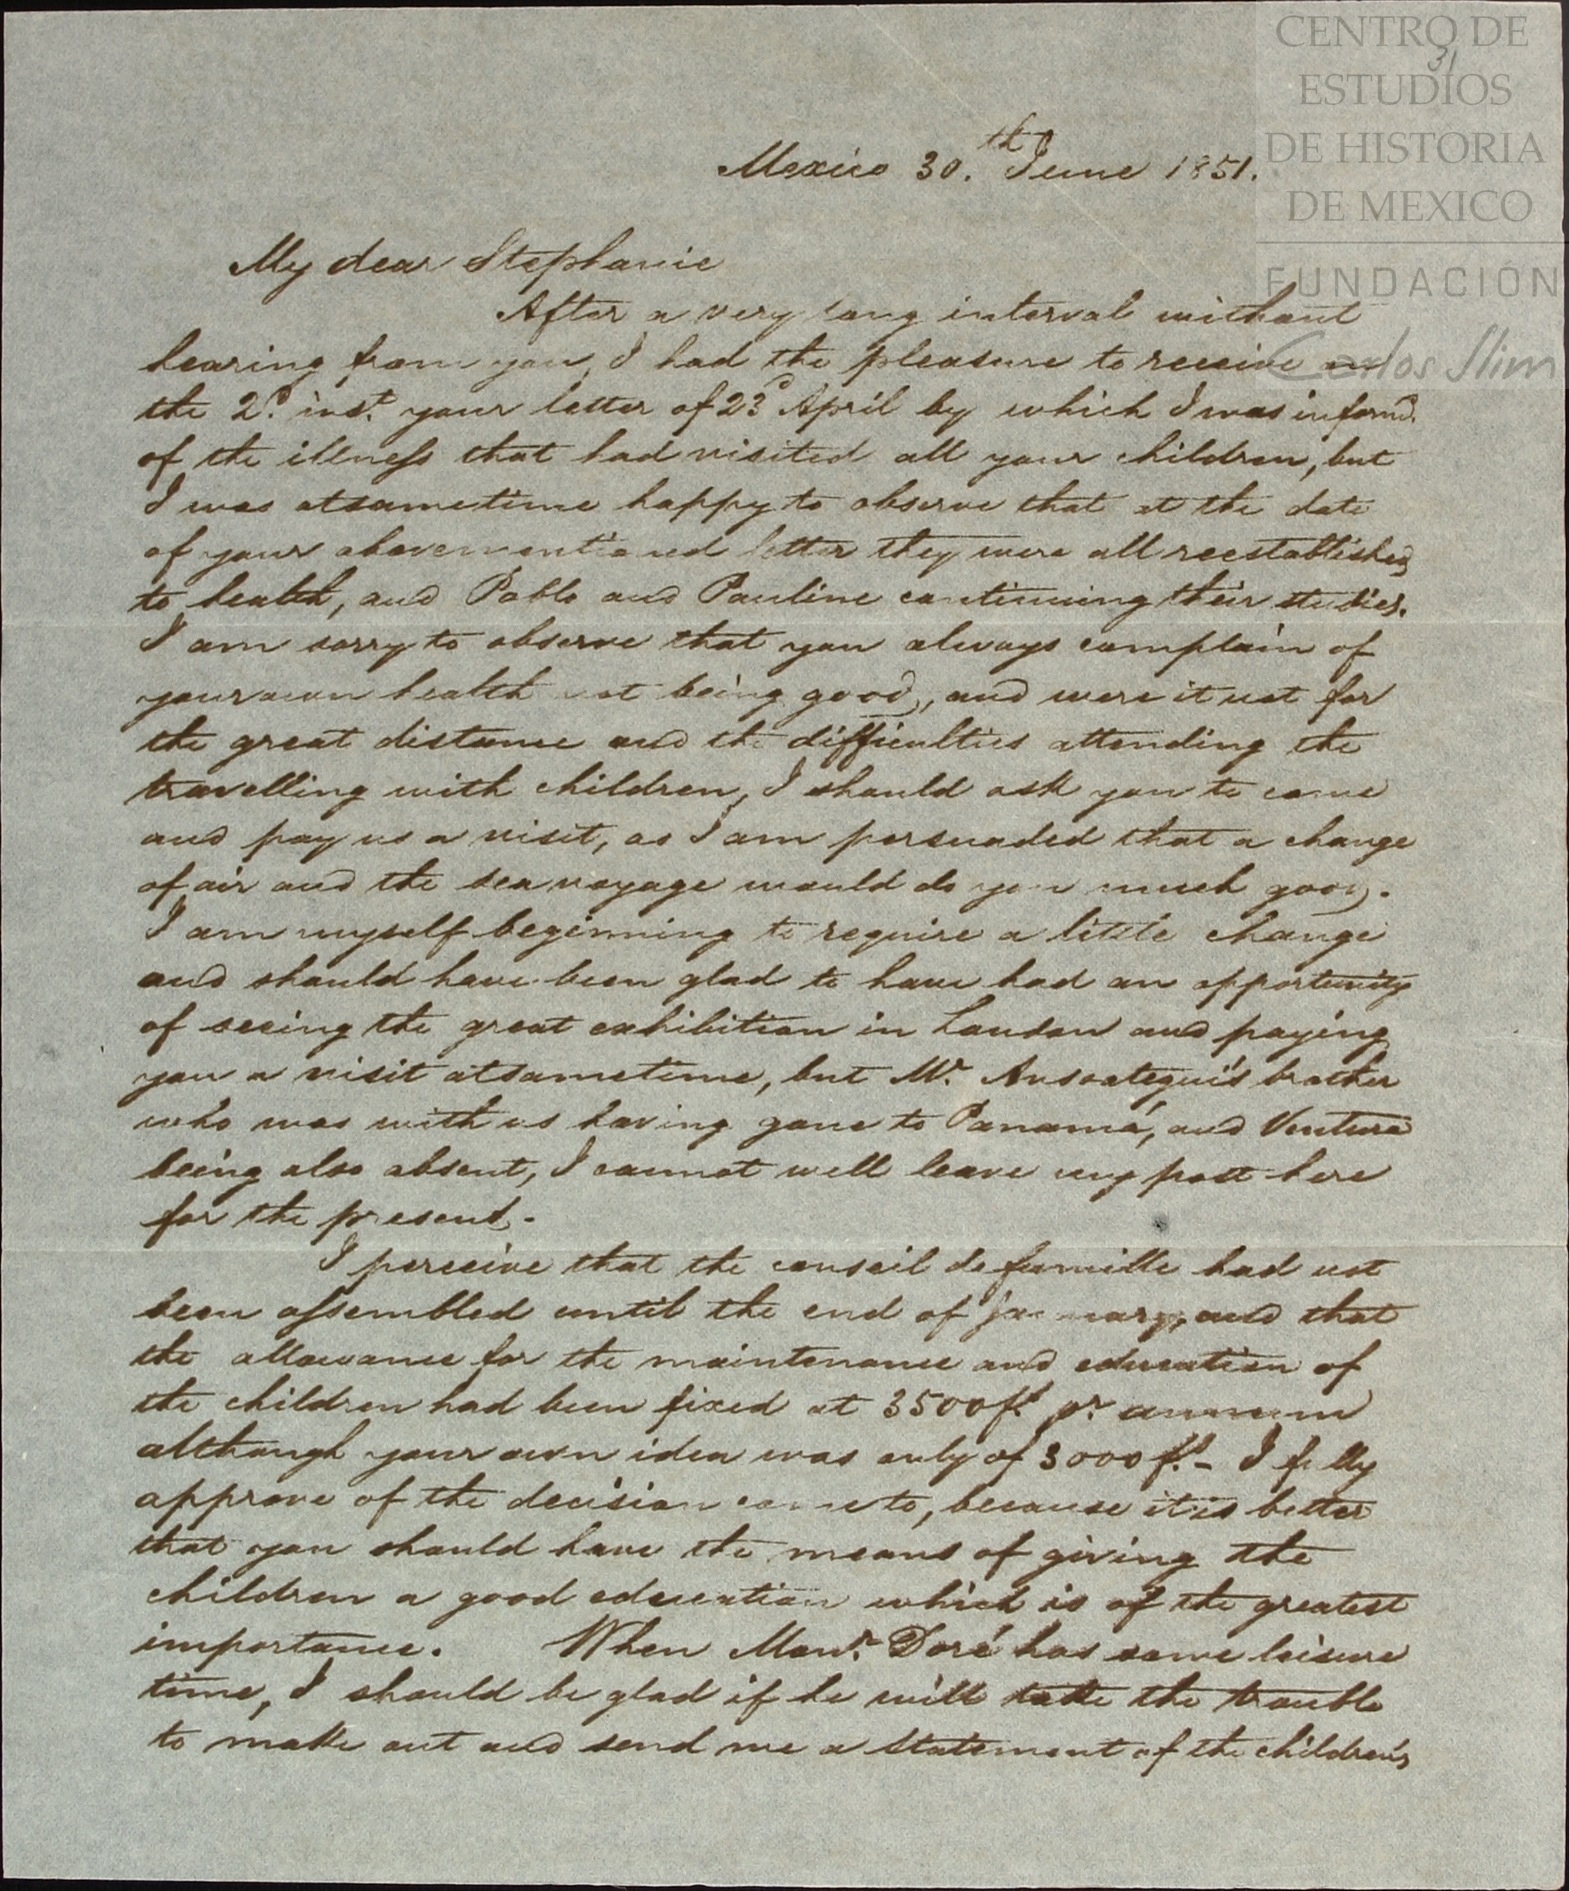 CENTRO DE
31
ESTUDIOS
DE HISTORIA
DE MEXICO
FUNDACIÓN
Carlos Slim
Mexico 30.th June 1851.
My dear Stephanie
After a very long interval without
hearing from you, I had the pleasure to receive on
the 2d. inst. your letter of 23d April by which I was informd.
of the illness that had visited all your children, but
I was atsametime happy to observe that at the date
of your abovementioned letter they were all reestablished
to health, and Pablo and Pauline continuing their studies.
I am sorry to observe that you always complain of
your own health not being good, and were it not for
the great distance and the difficulties attending the
travelling with children, I should ask you to come
and pay us a visit, as I am persuaded that a change
of air and the sea voyage would do you much good.
I am myself beginning to require a little change
and should have been glad to have had an opportunity
of seeing the great exhibition in London and paying
you a visit atsametime, but Mr. Ansoategui's brother
who was with us having gone to Panamá, and Ventura
being also absent, I cannot well leave my post here
for the present.-
I perceive that the conseil de famille had not
been assembled until the end of january, and that
the allowance for the maintenance and education of
the children had been fixed at 3500 fs. pr. annum
although your own idea was only of 3000 fs.- I fully
approve of the decision come to, because it is better
that you should have the means of giving the
children a good education which is of the greatest
importance. When Monr. Doré has some leisure
time, I should be glad if he will take the trouble
to make out and send me a statement of the children's